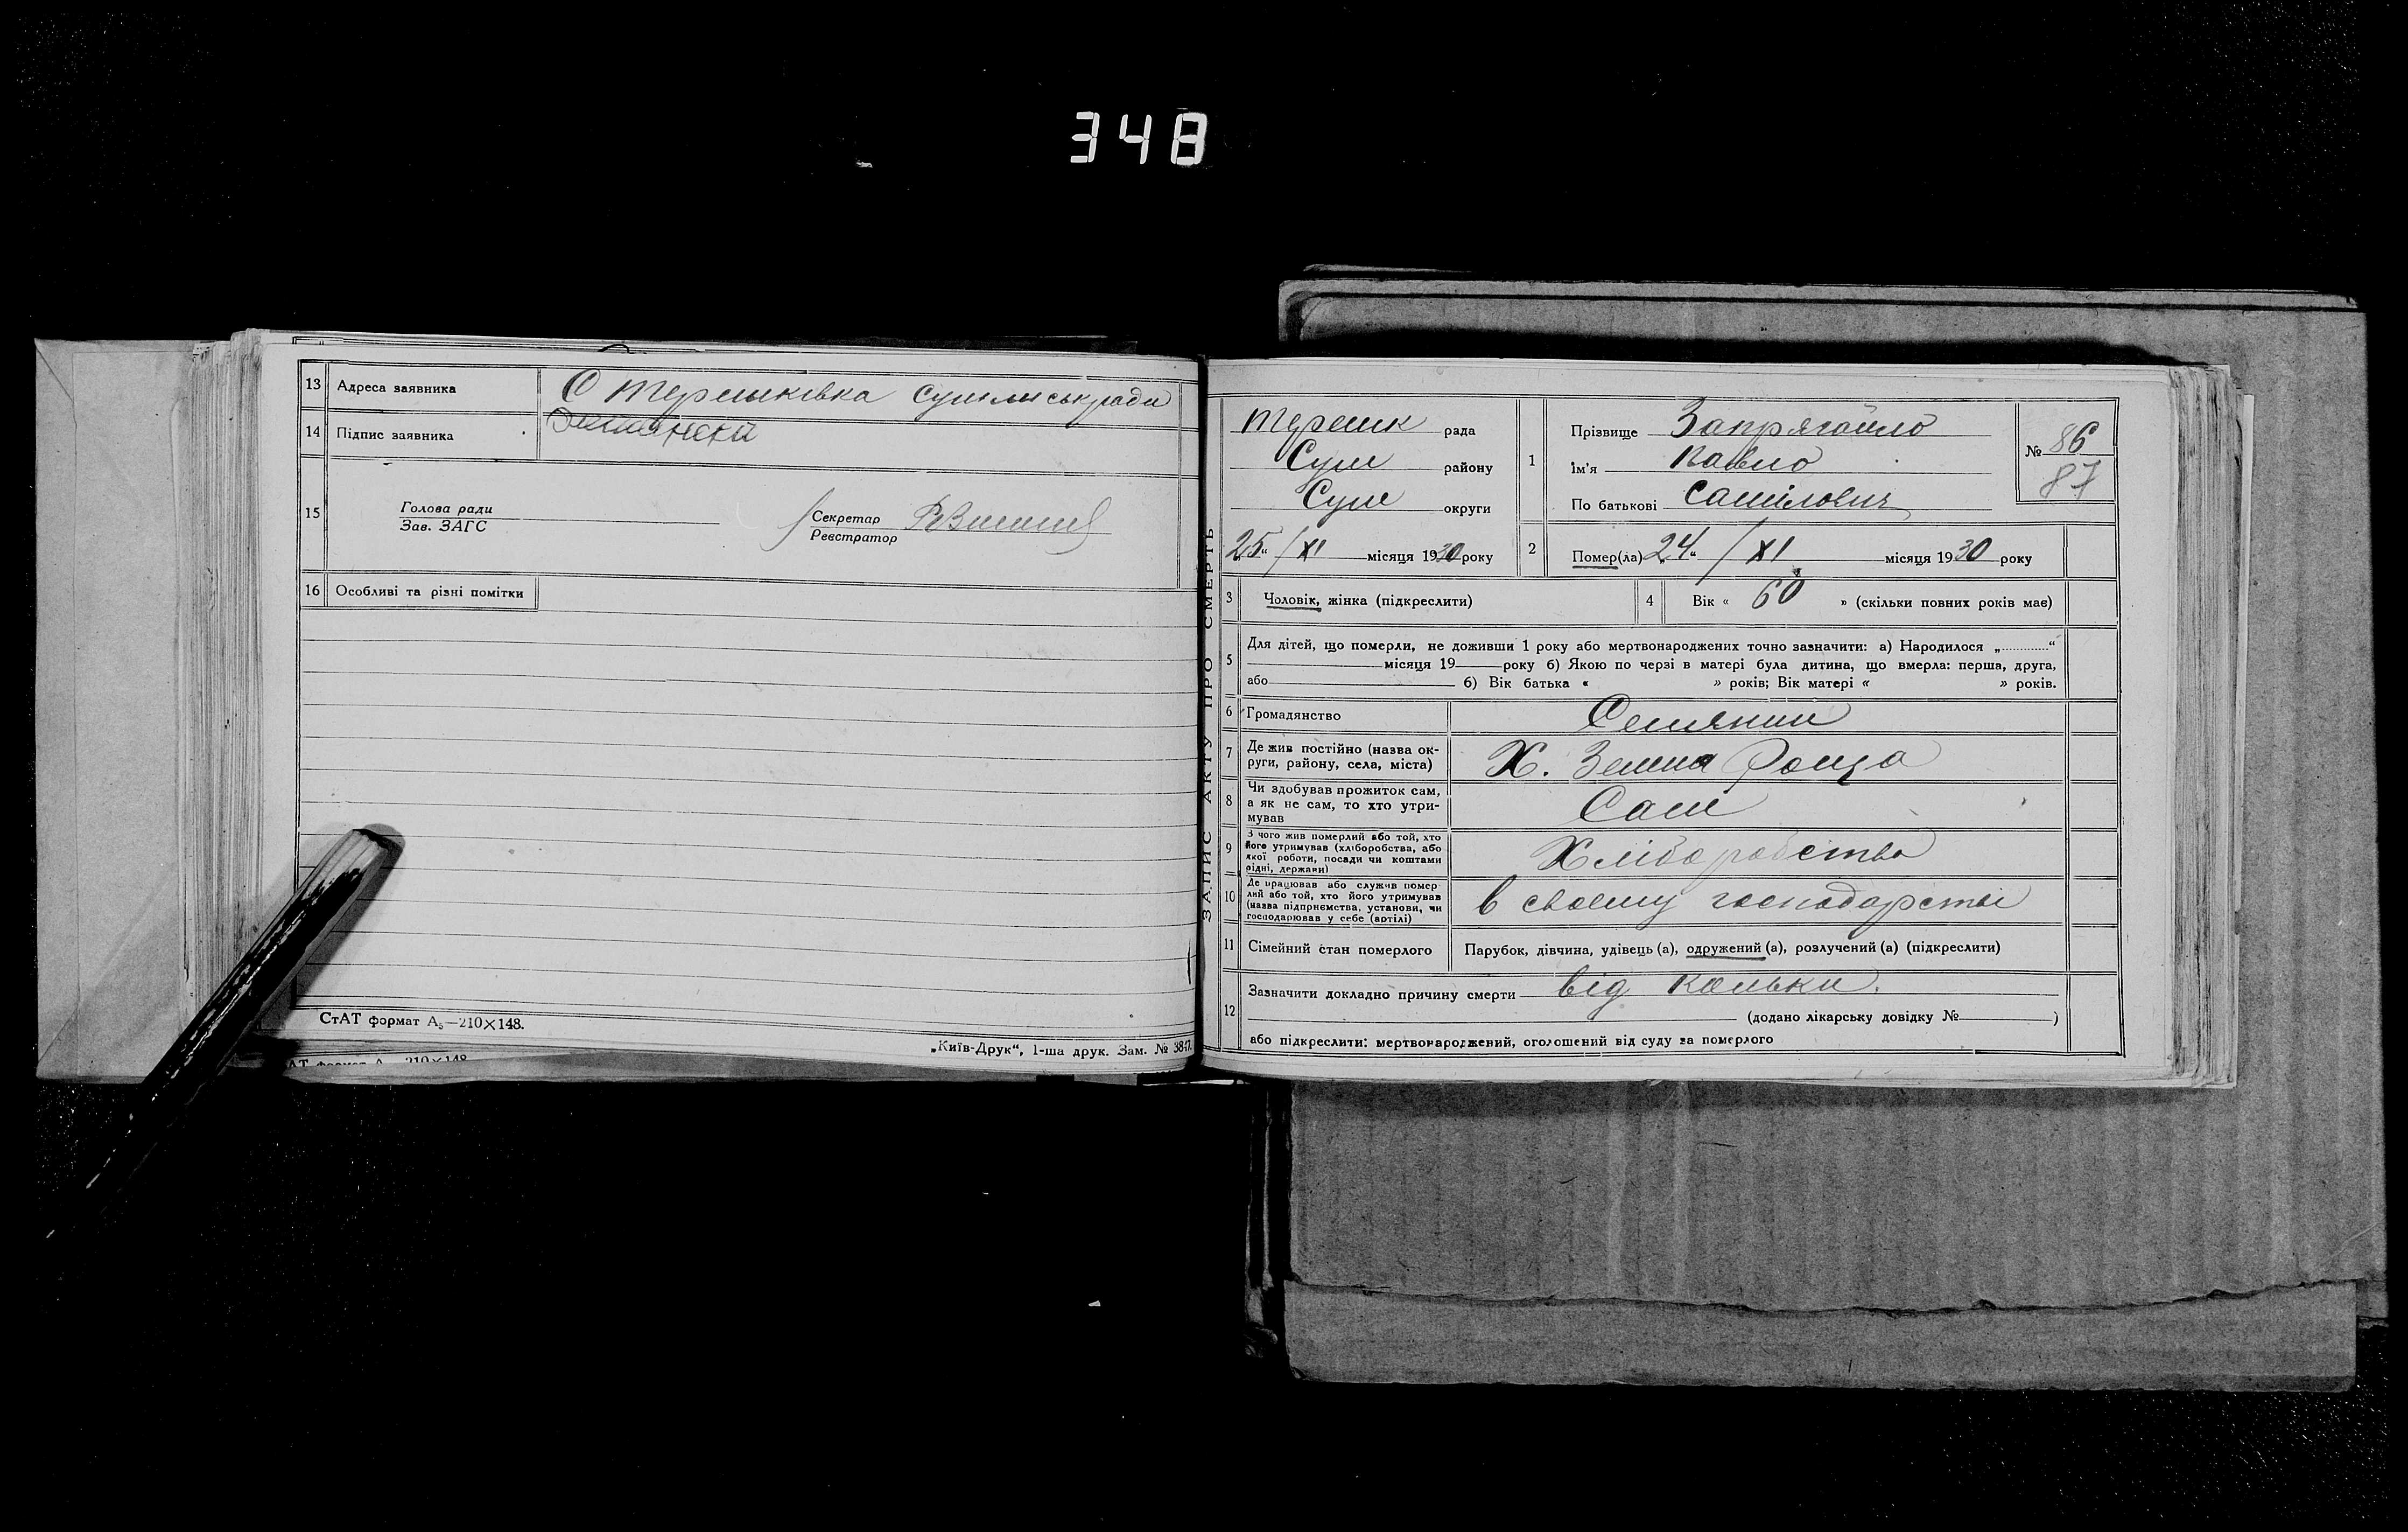 348
13 Адреса заявника С Терешківка
14 Підпис заявника
15 Голова ради
Зав. ЗАГС
Секретар
Реєстратор
16 Особливі та різні помітки
СтАТ формат А₅—210×148.
„Київ-Друк“, 1-ша друк. Зам. № 3847.
210×148
ЗАПИС АКТУ ПРО СМЕРТЬ
Терешк рада
Сум району
Сум округи
25 / XI місяця 1930 року
1 Прізвище Запрягайло
Ім'я Павло
По батькові Самілович
№ 86
87
2 Помер(ла) „24“ / XI місяця 1930 року
3 Чоловік, жінка (підкреслити)
4 Вік « 60 » (скільки повних років має)
5 Для дітей, що померли, не доживши 1 року або мертвонароджених точно зазначити: а) Народилося „............“
місяця 19 року б) Якою по черзі в матері була дитина, що вмерла: перша, друга,
або б) Вік батька « » років; Вік матері « » років.
6 Громадянство Селянин
7 Де жив постійно (назва ок-
руги, району, села, міста) Х. Зелена Роща
8 Чи здобував прожиток сам,
а як не сам, то хто утри-
мував Сам
9 З чого жив померлий або той, хто
його утримував (хліборобства, або
якої роботи, посади чи коштами
рідні, держави) Хліборобство
10 Де працював або служив помер-
лий або той, хто його утримував
(назва підприємства, установи, чи
господарював у себе (артілі) в своєму господарстві
11 Сімейний стан померлого Парубок, дівчина, удівець (а), одружений (а), розлучений (а) (підкреслити)
12 Зазначити докладно причину смерти від кольки.
(додано лікарську довідку № )
або підкреслити: мертвонароджений, оголошений від суду за померлого